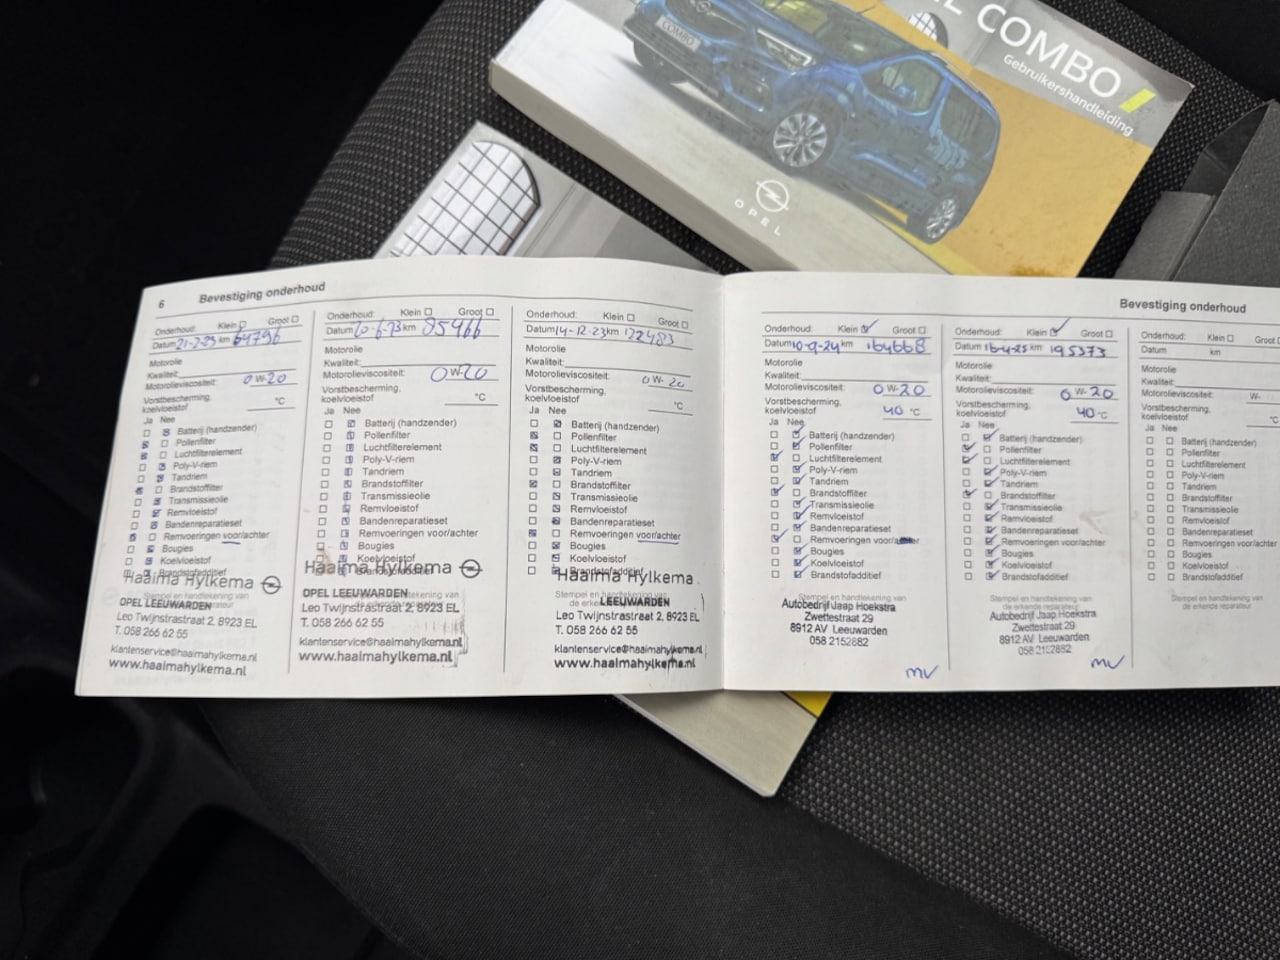 COMBO
Gebruikershandleiding
COMBO
OPEL
6 Bevestiging onderhoud
Onderhoud: Klein Groot
Datum 21-2-23 km 64796
Motorolie
Kwaliteit:
Motorolieviscositeit: 0 W-20
Vorstbescherming,
koelvloeistof °C
Ja Nee
Batterij (handzender)
Pollenfilter
Luchtfilterelement
Poly-V-riem
Tandriem
Brandstoffilter
Transmissieolie
Remvloeistof
Bandenreparatieset
Remvoeringen voor/achter
Bougies
Koelvloeistof
Brandstofadditief
Haaima Hylkema
OPEL LEEUWARDEN
Leo Twijnstrastraat 2, 8923 EL
T. 058 266 62 55
klantenservice@haaimahylkema.nl
www.haaimahylkema.nl
Onderhoud: Klein Groot
Datum 20-6-23 km 95466
Motorolie
Kwaliteit:
Motorolieviscositeit: 0 W-20
Vorstbescherming,
koelvloeistof °C
Ja Nee
Batterij (handzender)
Pollenfilter
Luchtfilterelement
Poly-V-riem
Tandriem
Brandstoffilter
Transmissieolie
Remvloeistof
Bandenreparatieset
Remvoeringen voor/achter
Bougies
Koelvloeistof
Brandstofadditief
Haaima Hylkema
OPEL LEEUWARDEN
Leo Twijnstrastraat 2, 8923 EL
T. 058 266 62 55
klantenservice@haaimahylkema.nl
www.haaimahylkema.nl
Onderhoud: Klein Groot
Datum 14-12-23 km 122483
Motorolie
Kwaliteit:
Motorolieviscositeit: 0 W-20
Vorstbescherming,
koelvloeistof °C
Ja Nee
Batterij (handzender)
Pollenfilter
Luchtfilterelement
Poly-V-riem
Tandriem
Brandstoffilter
Transmissieolie
Remvloeistof
Bandenreparatieset
Remvoeringen voor/achter
Bougies
Koelvloeistof
Brandstofadditief
Haaima Hylkema
Stempel en handtekening van
de LEEUWARDEN
Leo Twijnstrastraat 2, 8923 EL
T. 058 266 62 55
klantenservice@haaimahylkema.nl
www.haaimahylkema.nl
Bevestiging onderhoud
Onderhoud: Klein Groot
Datum 10-9-24 km 164668
Motorolie
Kwaliteit:
Motorolieviscositeit: 0 W-20
Vorstbescherming,
koelvloeistof 40 °C
Ja Nee
Batterij (handzender)
Pollenfilter
Luchtfilterelement
Poly-V-riem
Tandriem
Brandstoffilter
Transmissieolie
Remvloeistof
Bandenreparatieset
Remvoeringen voor/
Bougies
Koelvloeistof
Brandstofadditief
Stempel en handtekening van
Autobedrijf Jaap Hoekstra
Zwettestraat 29
8912 AV Leeuwarden
058 2152882
MV
Onderhoud: Klein Groot
Datum 16-4-25 km 195373
Motorolie
Kwaliteit:
Motorolieviscositeit: 0 W-20
Vorstbescherming,
koelvloeistof 40 °C
Ja Nee
Batterij (handzender)
Pollenfilter
Luchtfilterelement
Poly-V-riem
Tandriem
Brandstoffilter
Transmissieolie
Remvloeistof
Bandenreparatieset
Remvoeringen voor/achter
Bougies
Koelvloeistof
Brandstofadditief
Stempel en handtekening van
de erkende reparateur
Autobedrijf Jaap Hoekstra
Zwettestraat 29
8912 AV Leeuwarden
058 2152882
MV
Onderhoud: Klein Groot
Datum km
Motorolie
Kwaliteit:
Motorolieviscositeit: W-
Vorstbescherming,
koelvloeistof °C
Ja Nee
Batterij (handzender)
Pollenfilter
Luchtfilterelement
Poly-V-riem
Tandriem
Brandstoffilter
Transmissieolie
Remvloeistof
Bandenreparatieset
Remvoeringen voor/achter
Bougies
Koelvloeistof
Brandstofadditief
Stempel en handtekening van
de erkende reparateur